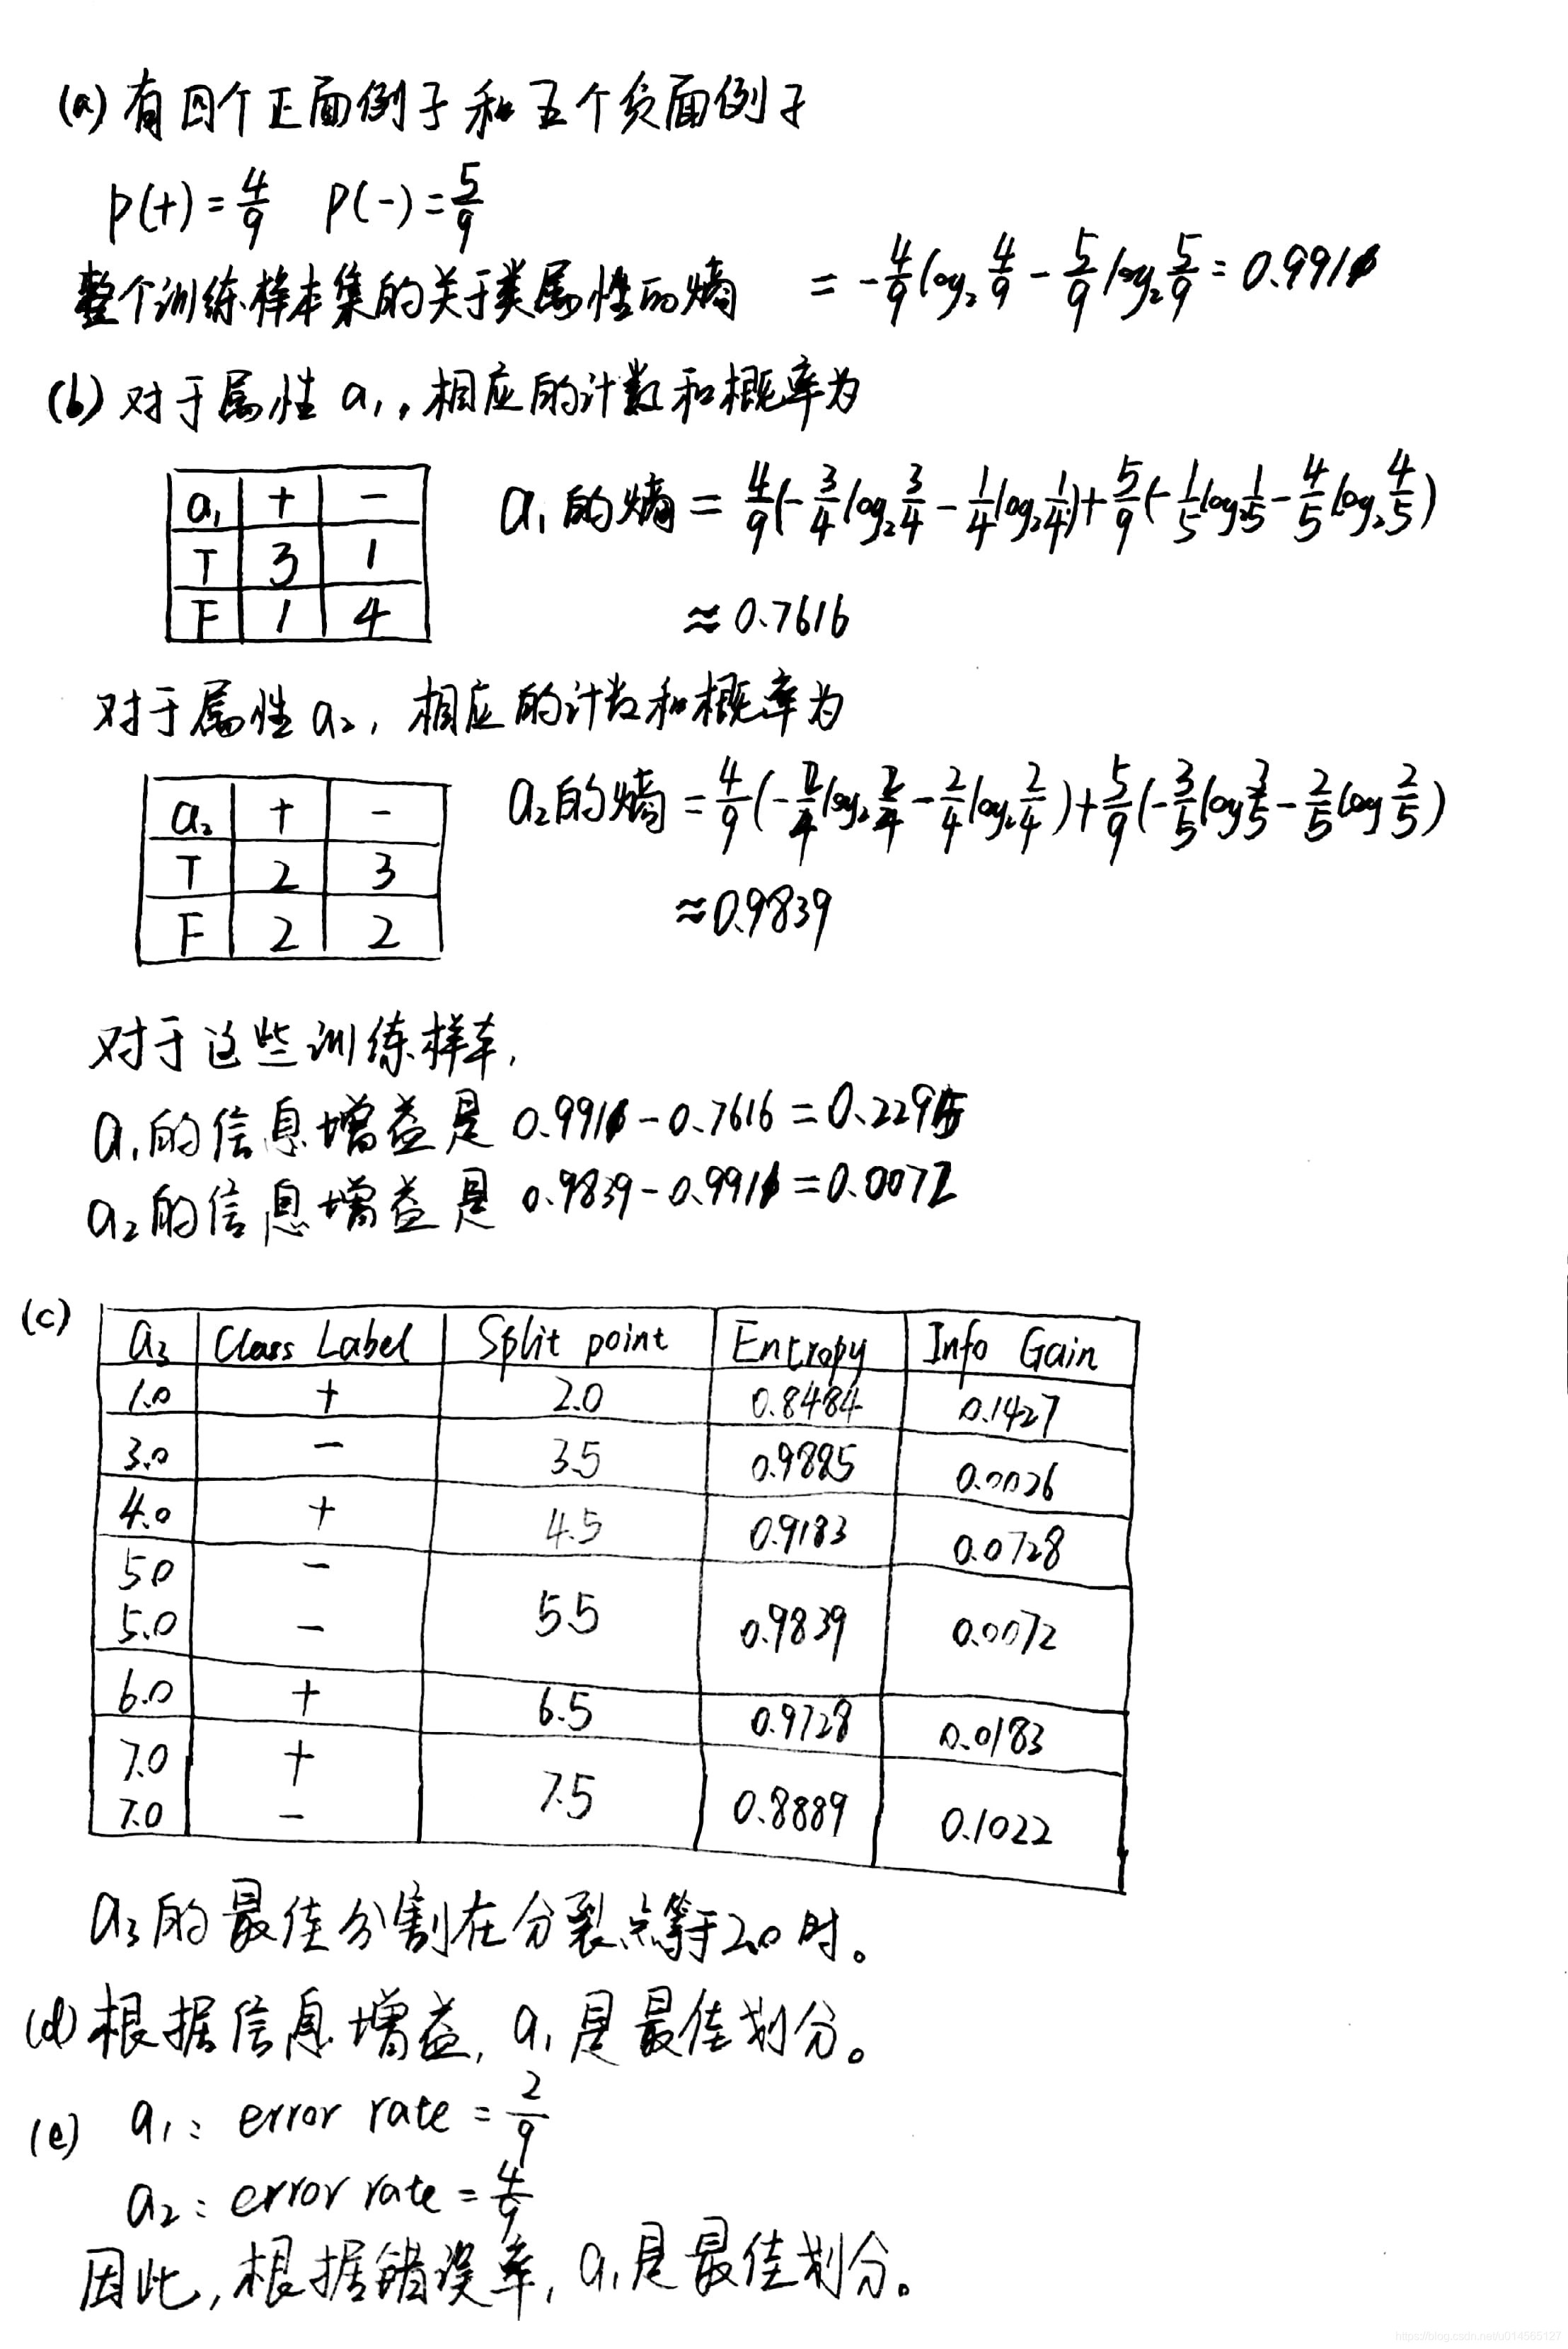 (a) 有四个正面例子和五个负面例子
P(+)=4/9 P(-)=5/9
整个训练样本集的关于类属性的熵 = -4/9 log₂ 4/9 - 5/9 log₂ 5/9 = 0.991
(b) 对于属性 a₁, 相应的计数和概率为
a₁ + -
T 3 1
F 1 4
a₁的熵 = 4/9(-3/4 log₂ 3/4 - 1/4 log₂ 1/4) + 5/9(-1/5 log₂ 1/5 - 4/5 log₂ 4/5)
≈ 0.7616
对于属性 a₂, 相应的计数和概率为
a₂ + -
T 2 3
F 2 2
a₂的熵 = 4/9(-2/4 log₂ 2/4 - 2/4 log₂ 2/4) + 5/9(-3/5 log 3/5 - 2/5 log 2/5)
≈ 0.9839
对于这些训练样本,
a₁的信息增益是 0.991 - 0.7616 = 0.229
a₂的信息增益是 0.9839 - 0.991 = 0.0072
(c)
a₃ Class Label Split point Entropy Info Gain
1.0 + 2.0 0.8484 0.1427
3.0 - 3.5 0.9885 0.0026
4.0 + 4.5 0.9183 0.0728
5.0 -
5.0 - 5.5 0.9839 0.0072
6.0 + 6.5 0.9728 0.0183
7.0 +
7.0 - 7.5 0.8889 0.1022
a₃的最佳分割在分裂点等于2.0时。
(d) 根据信息增益, a₁是最佳划分。
(e) a₁: error rate = 2/9
a₂: error rate = 4/9
因此, 根据错误率, a₁是最佳划分。
https://blog.csdn.net/u014565127